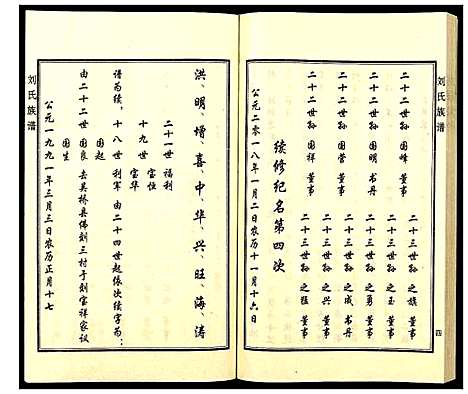 刘氏族谱
二十二世孙 国峰 董事
二十二世孙 国明 书丹
二十二世孙 国营 董事
二十二世孙 国祥 董事
二十三世孙 之旗 董事
二十三世孙 之玉 董事
二十三世孙 之勇 董事
二十三世孙 之成 书丹
二十三世孙 之兴 董事
二十三世孙 之恒 董事
续修纪名第四次
公元二零一八年一月二日农历十一月十六日
四
洪、明、增、喜、中、华、兴、旺、海、涛
二十一世 福利
谱为续,十八世 利军 由二十四世起依次续字为:
十九世 宝恒
宝华
国起
由二十二世 国良 去吴桥县佛刘三村于刘宝祥家议
国生
公元一九九一年三月三日农历正月十七
刘氏族谱